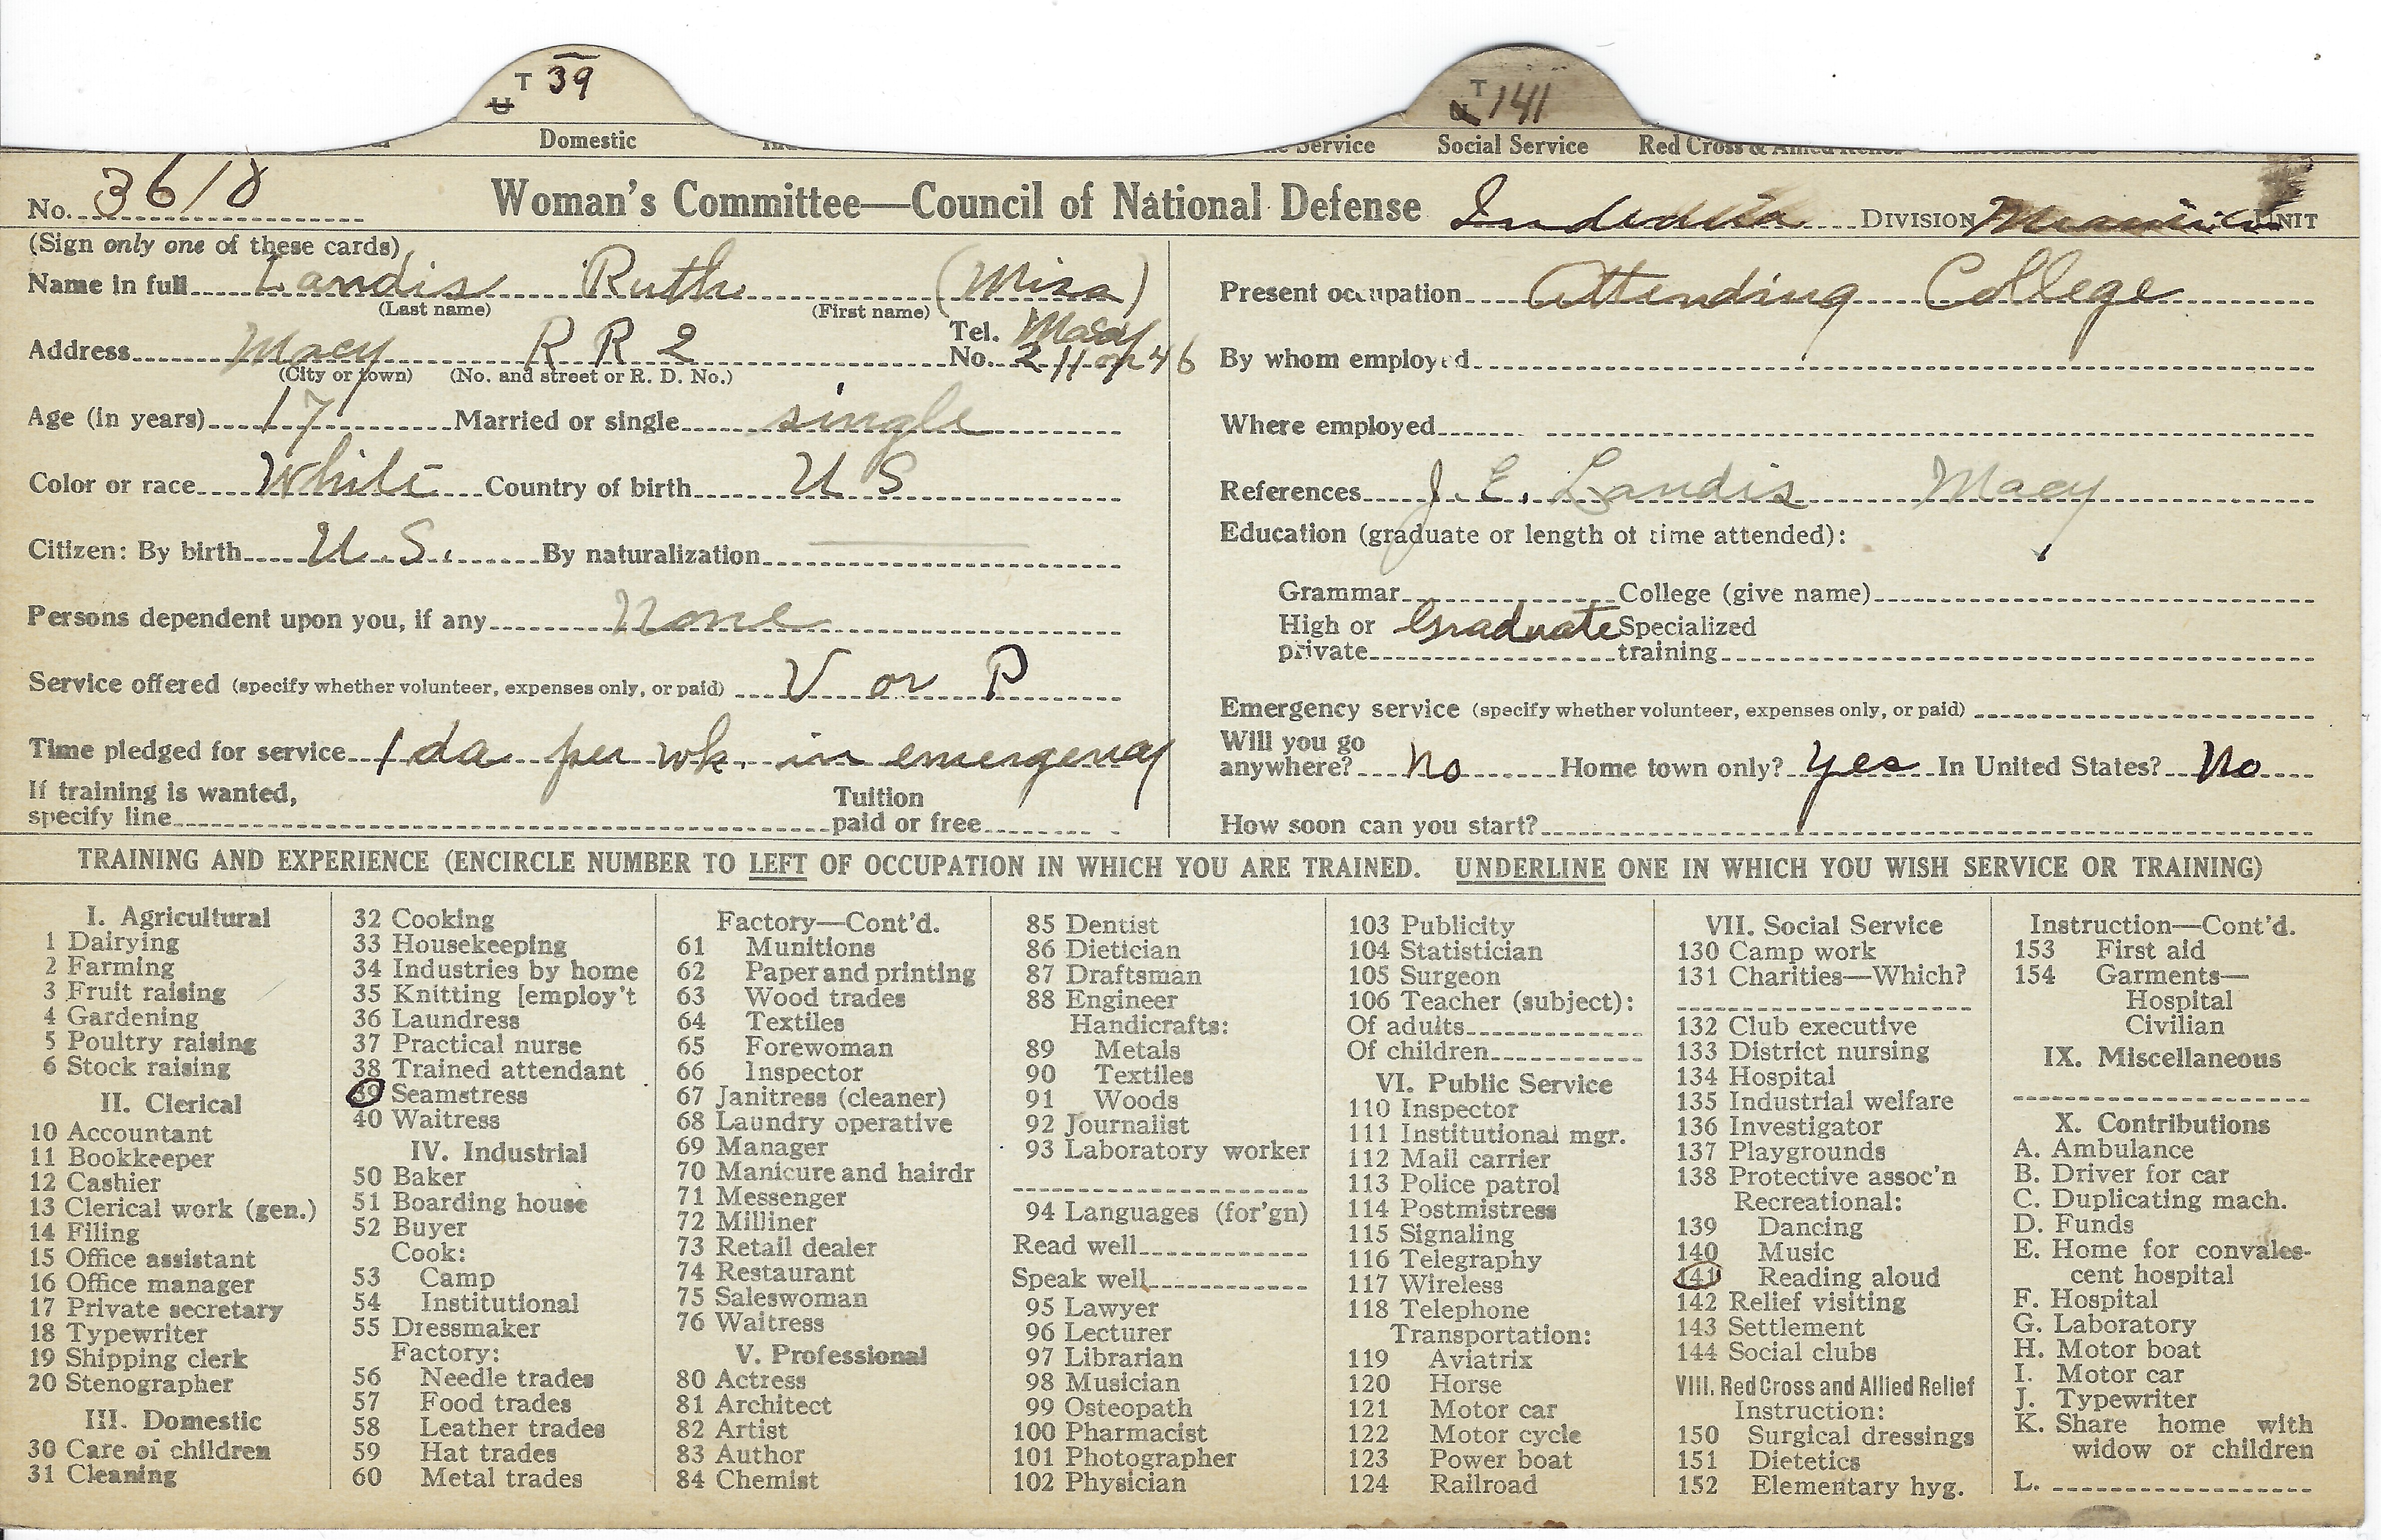 T 39
U
T 141
U
Domestic
Service Social Service Red Cross & Allied Relief
No. 3618 Woman's Committee—Council of National Defense Indiana DIVISION Miami UNIT
(Sign only one of these cards)
Name in full Landis Ruth (Miss)
(Last name) (First name)
Address Macy R R 2 Tel. No. Macy 2 11 on 46
(City or town) (No. and street or R. D. No.)
Age (in years) 17 Married or single single
Color or race White Country of birth U S
Citizen: By birth U.S. By naturalization
Persons dependent upon you, if any None
Service offered (specify whether volunteer, expenses only, or paid) V or P
Time pledged for service 1 da per wk. in emergency
If training is wanted,
specify line Tuition paid or free
Present occupation Attending College
By whom employed
Where employed
References J. E. Landis Macy
Education (graduate or length of time attended):
Grammar College (give name)
High or private Graduate Specialized training
Emergency service (specify whether volunteer, expenses only, or paid)
Will you go anywhere? No Home town only? Yes In United States? No
How soon can you start?
TRAINING AND EXPERIENCE (ENCIRCLE NUMBER TO LEFT OF OCCUPATION IN WHICH YOU ARE TRAINED. UNDERLINE ONE IN WHICH YOU WISH SERVICE OR TRAINING)
I. Agricultural
1 Dairying
2 Farming
3 Fruit raising
4 Gardening
5 Poultry raising
6 Stock raising
II. Clerical
10 Accountant
11 Bookkeeper
12 Cashier
13 Clerical work (gen.)
14 Filing
15 Office assistant
16 Office manager
17 Private secretary
18 Typewriter
19 Shipping clerk
20 Stenographer
III. Domestic
30 Care of children
31 Cleaning
32 Cooking
33 Housekeeping
34 Industries by home
35 Knitting [employ't
36 Laundress
37 Practical nurse
38 Trained attendant
39 Seamstress
40 Waitress
IV. Industrial
50 Baker
51 Boarding house
52 Buyer
Cook:
53 Camp
54 Institutional
55 Dressmaker
Factory:
56 Needle trades
57 Food trades
58 Leather trades
59 Hat trades
60 Metal trades
Factory—Cont'd.
61 Munitions
62 Paper and printing
63 Wood trades
64 Textiles
65 Forewoman
66 Inspector
67 Janitress (cleaner)
68 Laundry operative
69 Manager
70 Manicure and hairdr
71 Messenger
72 Milliner
73 Retail dealer
74 Restaurant
75 Saleswoman
76 Waitress
V. Professional
80 Actress
81 Architect
82 Artist
83 Author
84 Chemist
85 Dentist
86 Dietician
87 Draftsman
88 Engineer
Handicrafts:
89 Metals
90 Textiles
91 Woods
92 Journalist
93 Laboratory worker
94 Languages (for'gn)
Read well
Speak well
95 Lawyer
96 Lecturer
97 Librarian
98 Musician
99 Osteopath
100 Pharmacist
101 Photographer
102 Physician
103 Publicity
104 Statistician
105 Surgeon
106 Teacher (subject):
Of adults
Of children
VI. Public Service
110 Inspector
111 Institutional mgr.
112 Mail carrier
113 Police patrol
114 Postmistress
115 Signaling
116 Telegraphy
117 Wireless
118 Telephone
Transportation:
119 Aviatrix
120 Horse
121 Motor car
122 Motor cycle
123 Power boat
124 Railroad
VII. Social Service
130 Camp work
131 Charities—Which?
132 Club executive
133 District nursing
134 Hospital
135 Industrial welfare
136 Investigator
137 Playgrounds
138 Protective assoc'n
Recreational:
139 Dancing
140 Music
141 Reading aloud
142 Relief visiting
143 Settlement
144 Social clubs
VIII. Red Cross and Allied Relief
Instruction:
150 Surgical dressings
151 Dietetics
152 Elementary hyg.
Instruction—Cont'd.
153 First aid
154 Garments—
Hospital
Civilian
IX. Miscellaneous
X. Contributions
A. Ambulance
B. Driver for car
C. Duplicating mach.
D. Funds
E. Home for convales-
cent hospital
F. Hospital
G. Laboratory
H. Motor boat
I. Motor car
J. Typewriter
K. Share home with
widow or children
L.